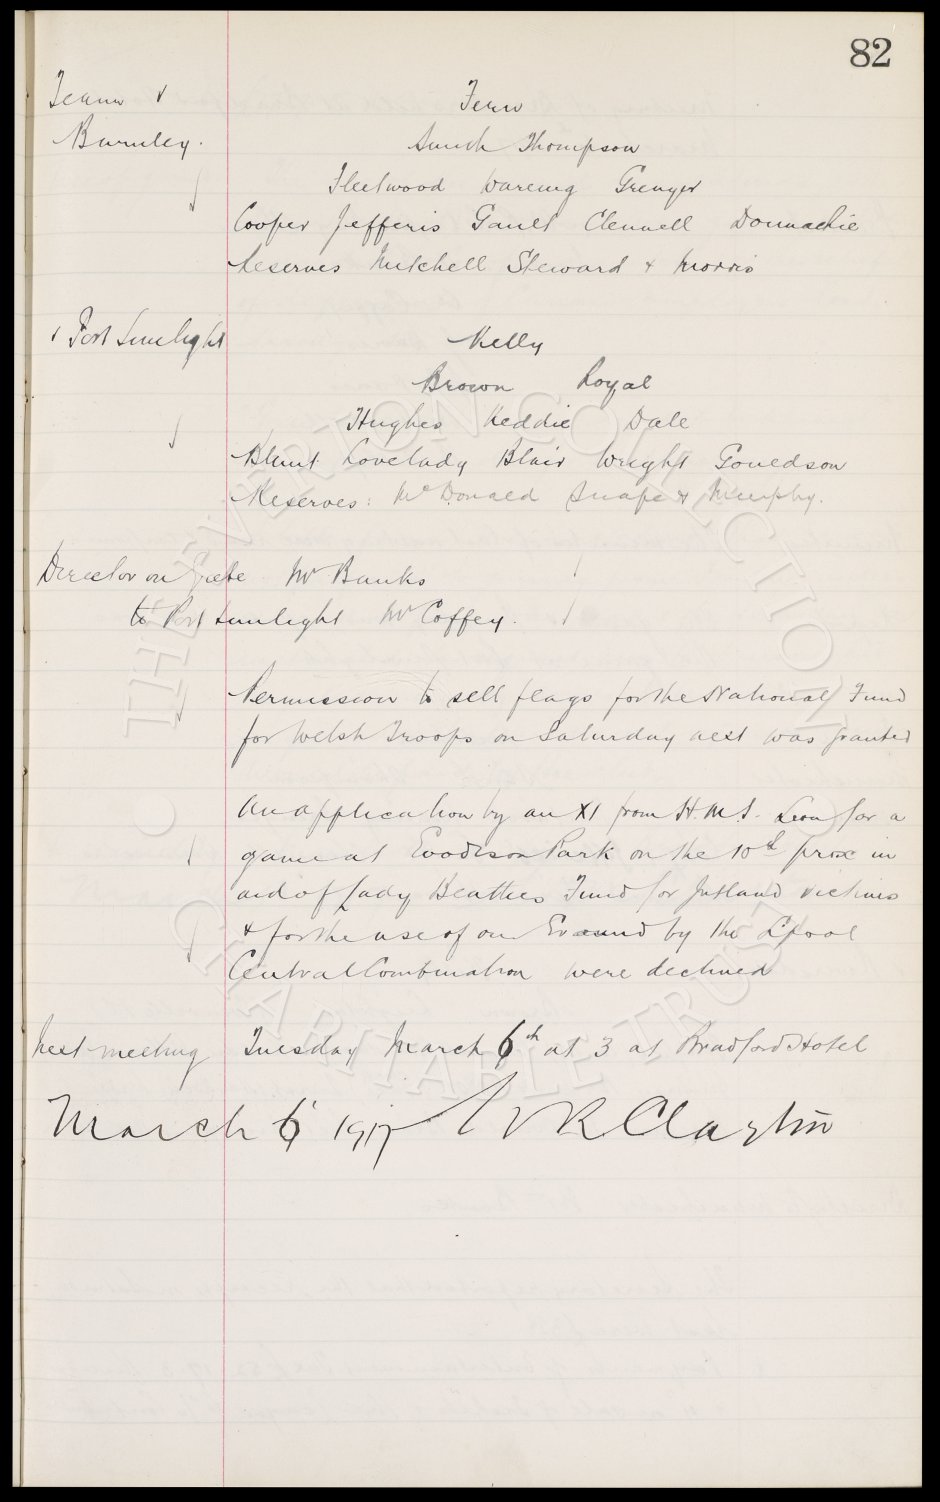 82
Teams v Fern
Burnley. Smith Thompson
Fleetwood Wareing Grenyer
Cooper Jefferis Gault Clennell Donnachie
Reserves Mitchell Steward & Morris
v Port Sunlight Kelly
Brown Royal
Hughes Keddie Dale
Blunt Lovelady Blair Wright Gouldson
Reserves: McDonald Snape & Murphy.
Director on Gate Mr Banks
to Port Sunlight Mr Coffey.
Permission to sell flags for the National Fund
for Welsh Troops on Saturday next was granted
An application by an XI from H.M.S. Lion for a
game at Goodison Park on the 10th prox in
aid of Lady Beatties Fund for Jutland victims
& for the use of our Ground by the L'pool
Central Combination were declined
Next meeting Tuesday March 6th at 3 at Bradford Hotel
March 6 1917 W R Clayton
THE EVERTON COLLECTION
CHARITABLE TRUST